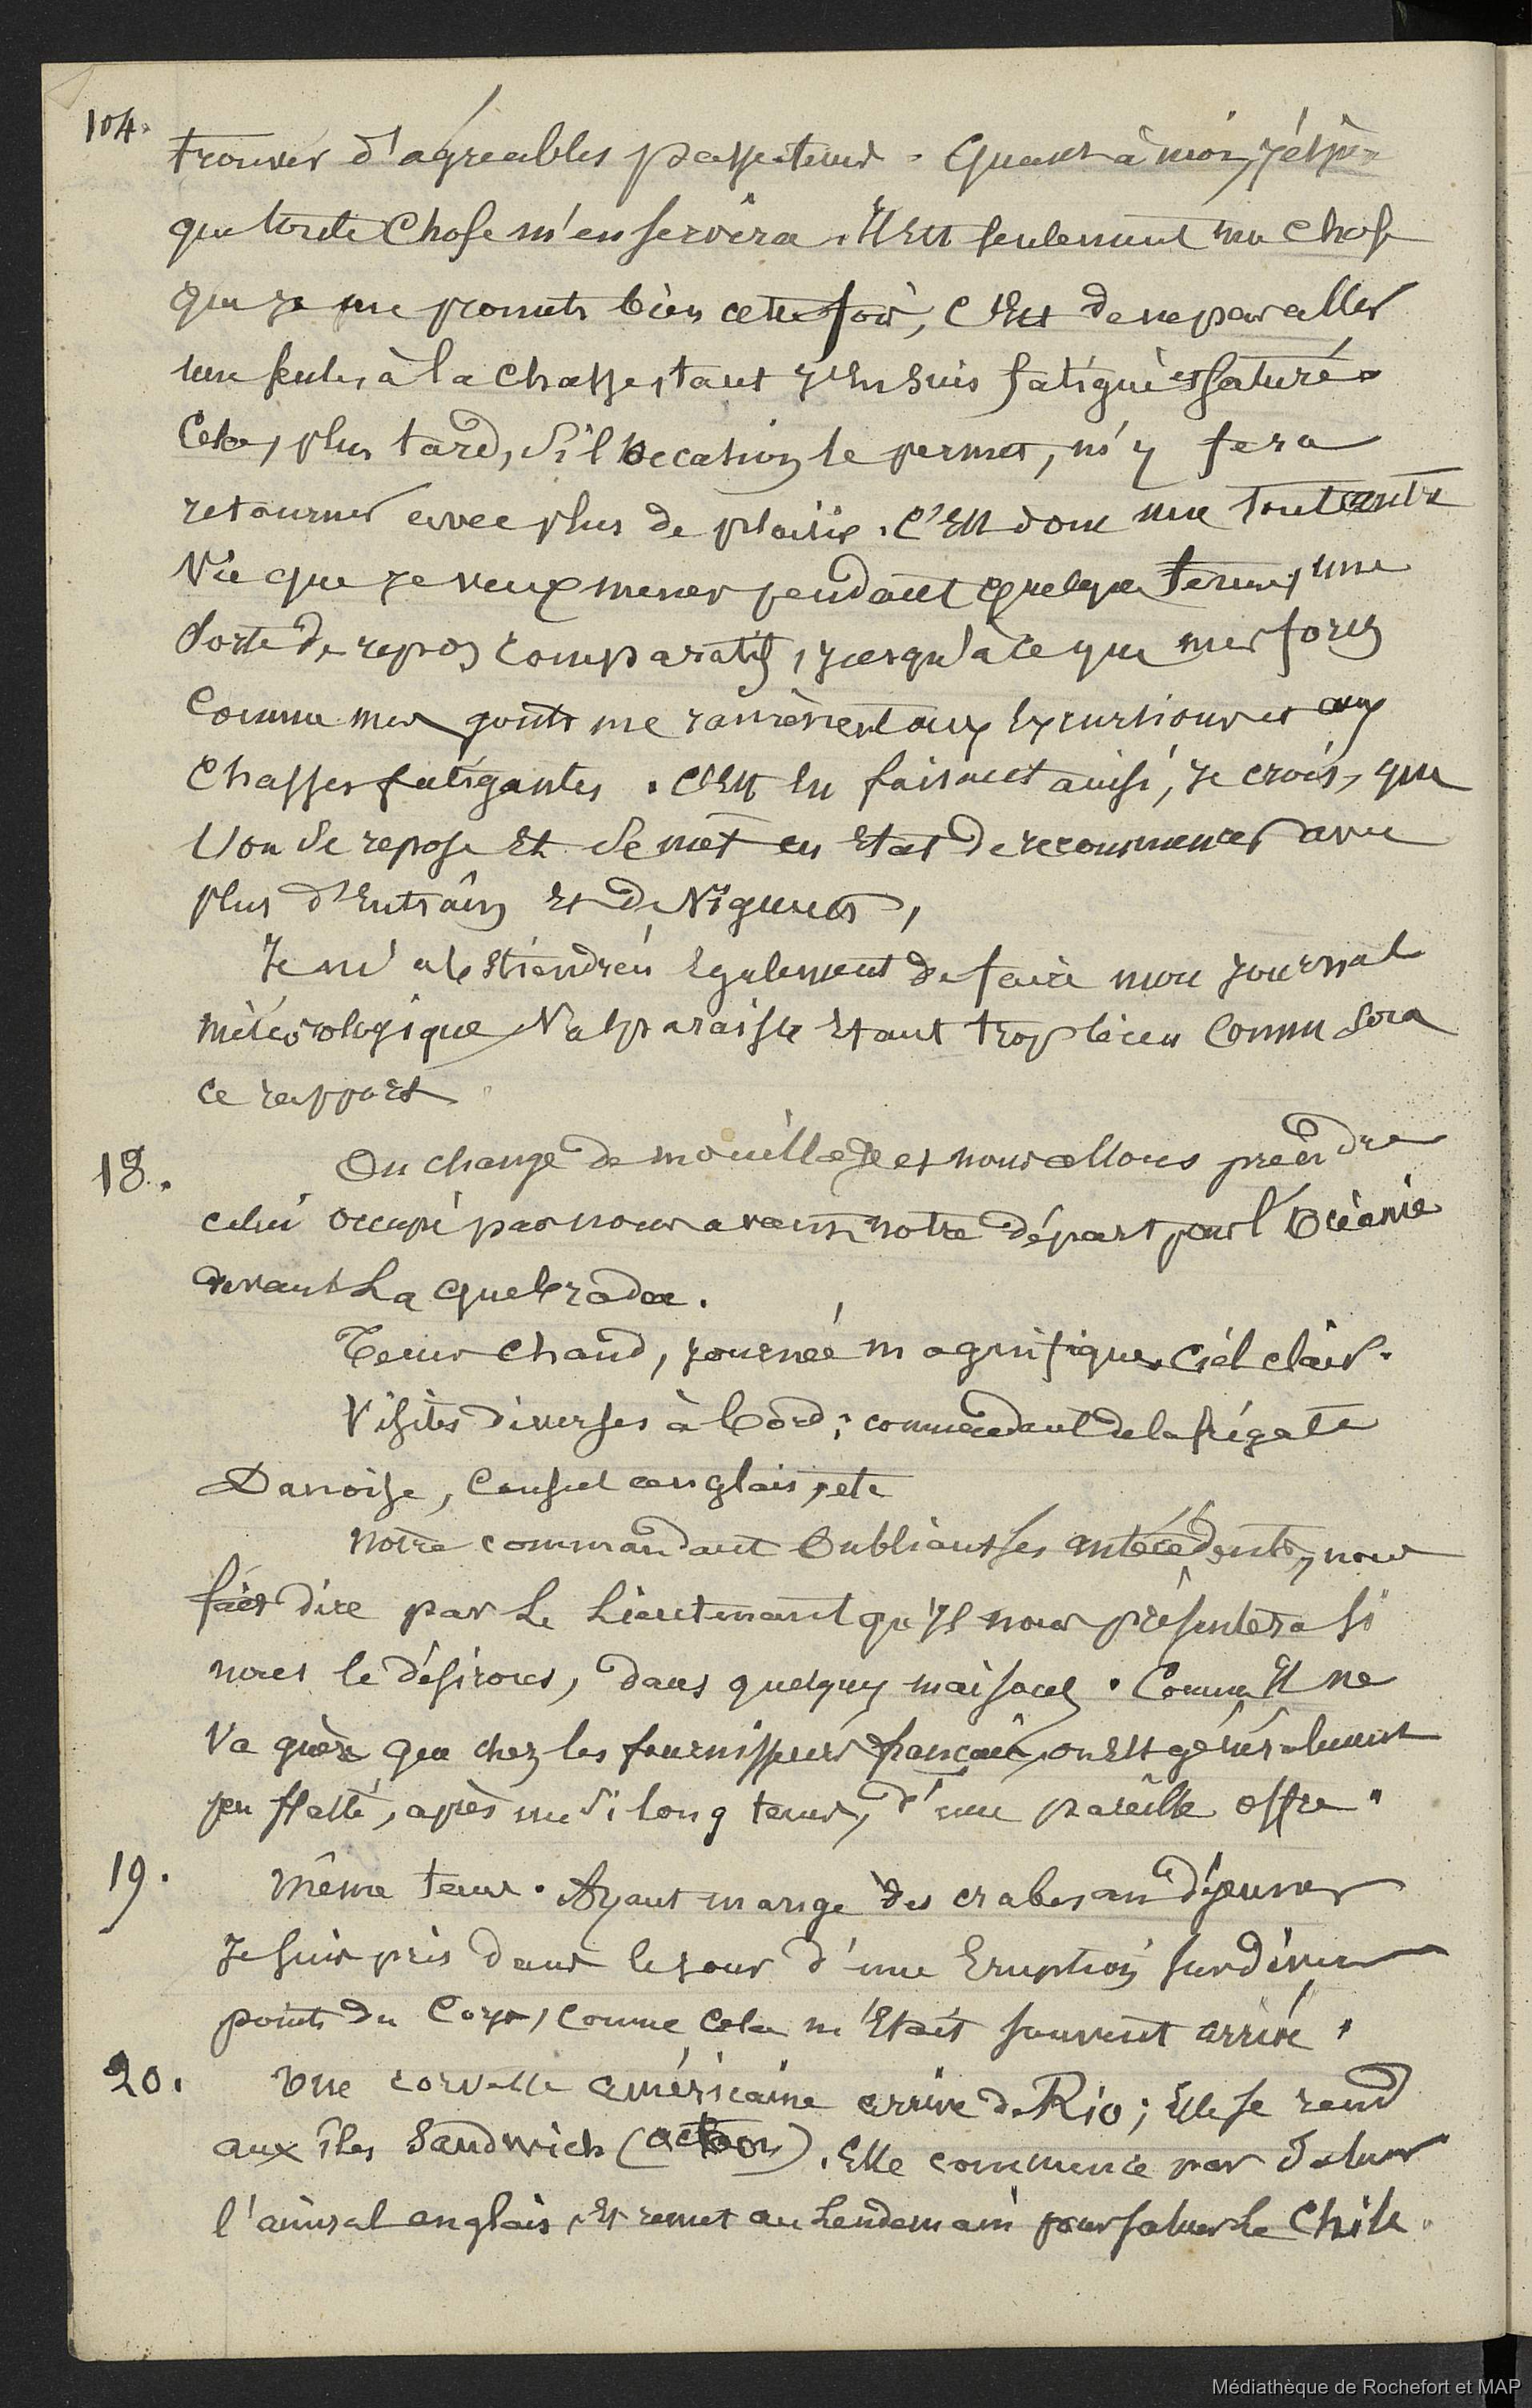 104.
trouver d'agréables passetems. Quant à moi, j'espère
que toute chose m'en servira. Il est seulement une chose
que je me promets bien cette fois, c'est de ne pas aller
une seule à la chasse, tant j'en suis fatigué et saturé.
Cela, plus tard, si l'occasion le permet, m'y fera
retourner avec plus de plaisir. C'est donc une toute autre
vie que je veux mener pendant quelque tems, une
sorte de repos comparatif, jusqu'à ce que mes forces
comme mes goûts me ramènent aux excursions et aux
chasses fatigantes. C'est en faisant ainsi, je crois, que
l'on se repose et se met en état de recommencer avec
plus d'entrain et de vigueur,
Je m'abstiendrai également de faire mon journal
météorologique Valparaiso étant trop bien connu sous
ce rapport
18.
On change de mouillage et nous allons prendre
celui occupé par nous avant notre départ pour l'Océanie
devant La quebrada.
Tems chaud, journée magnifique, ciel clair.
Visites diverses à bord; commandant de la frégate
Danoise, Consul anglais, etc
Notre commandant oubliant ses antécédents, nous
fait dire par le Lieutenant qu'il nous présentera si
nous le désirons, dans quelques maisons. Comme il ne
va guère que chez les fournisseurs français, on est généralement
peu flatté, après un si long tems, d'une pareille offre.
19.
Même tems. Ayant mangé des crabes au déjeuner
Je suis pris dans le jour d'une éruption sur divers
points du corps, comme cela m'était souvent arrivé.
20.
Une corvette américaine arrive de Rio; elle se rend
aux îles Sandwich (acteon). Elle commence par saluer
l'amiral anglais, et remet au Lendemain pour saluer le Chili.
Médiathèque de Rochefort et MAP